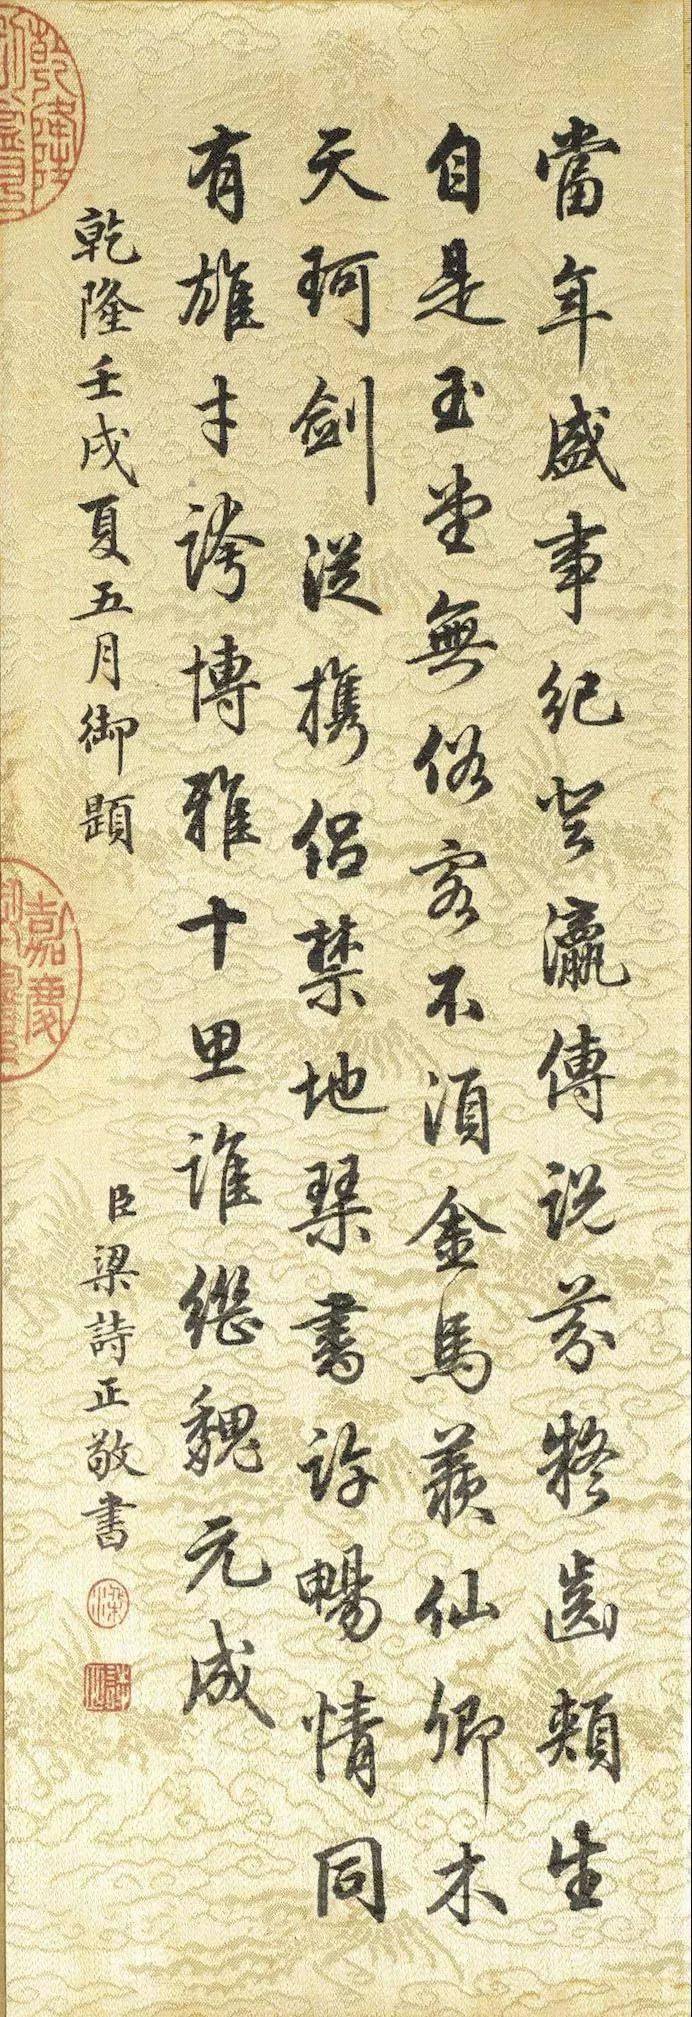 當年盛事紀登瀛傳說芬凝齒頰生
自是玉堂無俗客不須金馬羨仙卿木
天珂劍從携侶禁地琴書許暢情同
有雄才誇博雅十思誰繼魏元成
乾隆壬戌夏五月御題
臣梁詩正敬書
乾隆
嘉慶